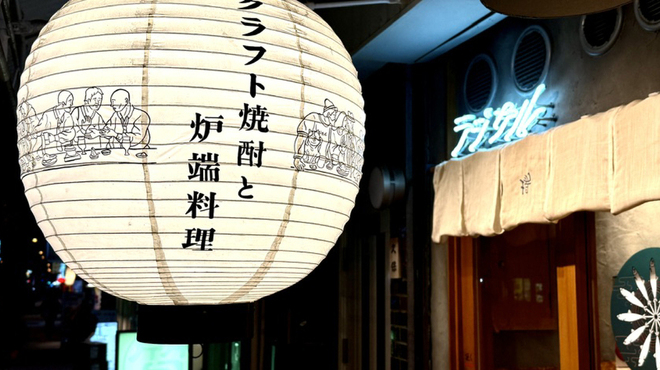 クラフト焼酎と
炉端料理